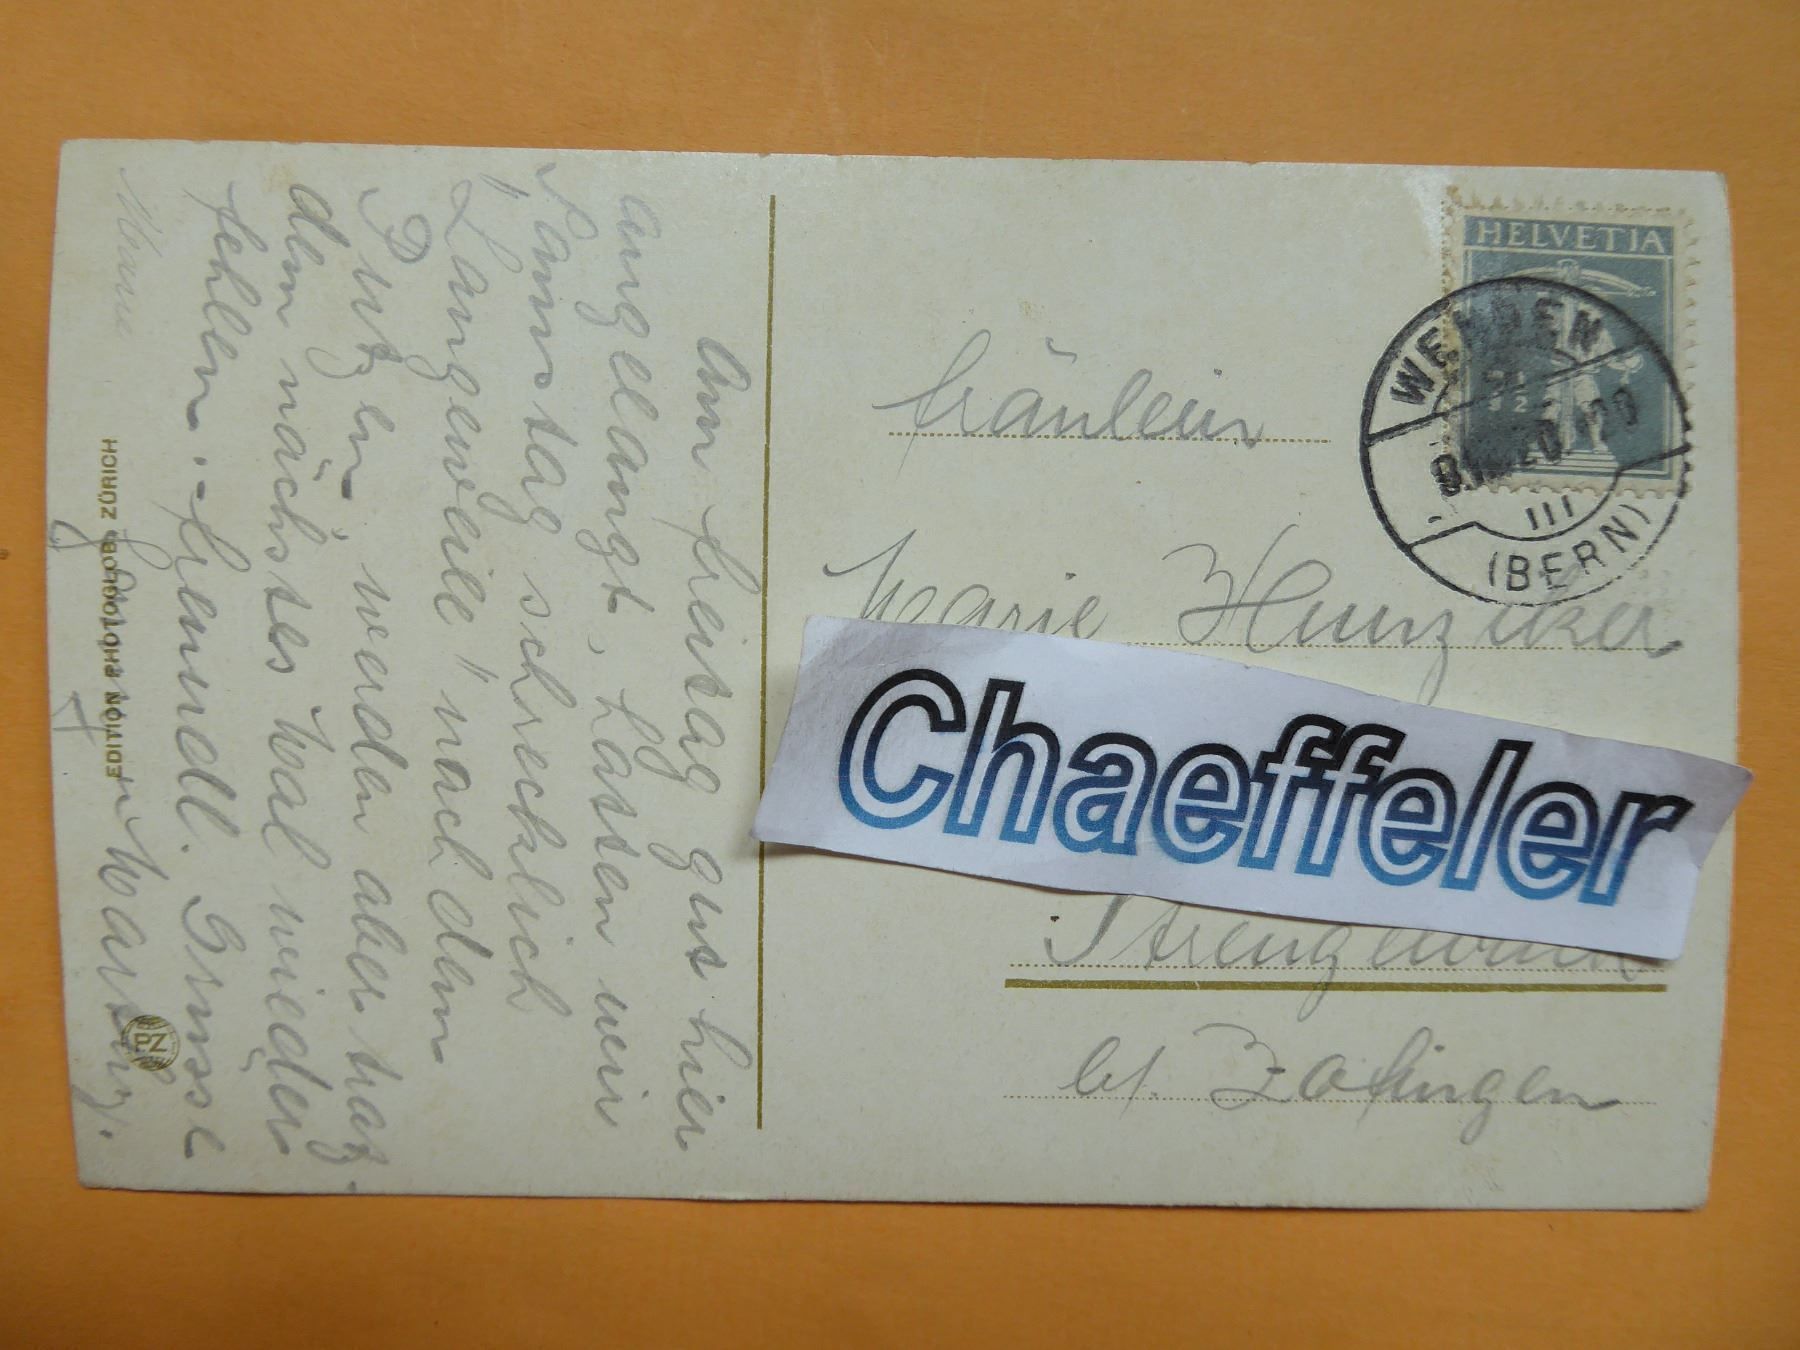 Am Freitag gut hier
angelangt, hatten wir
Samstag schrecklich
"Langeweile" nach dem
werden aber trotz
dem nächstes Mal wieder
fehlen. freundl. Grüsse
EDITION PHOTOGLOB, ZÜRICH
PZ
HELVETIA
III
(BERN)
Fräulein
Marie Hunziker
Chaeffeler
Strengelbach
b/. Zofingen